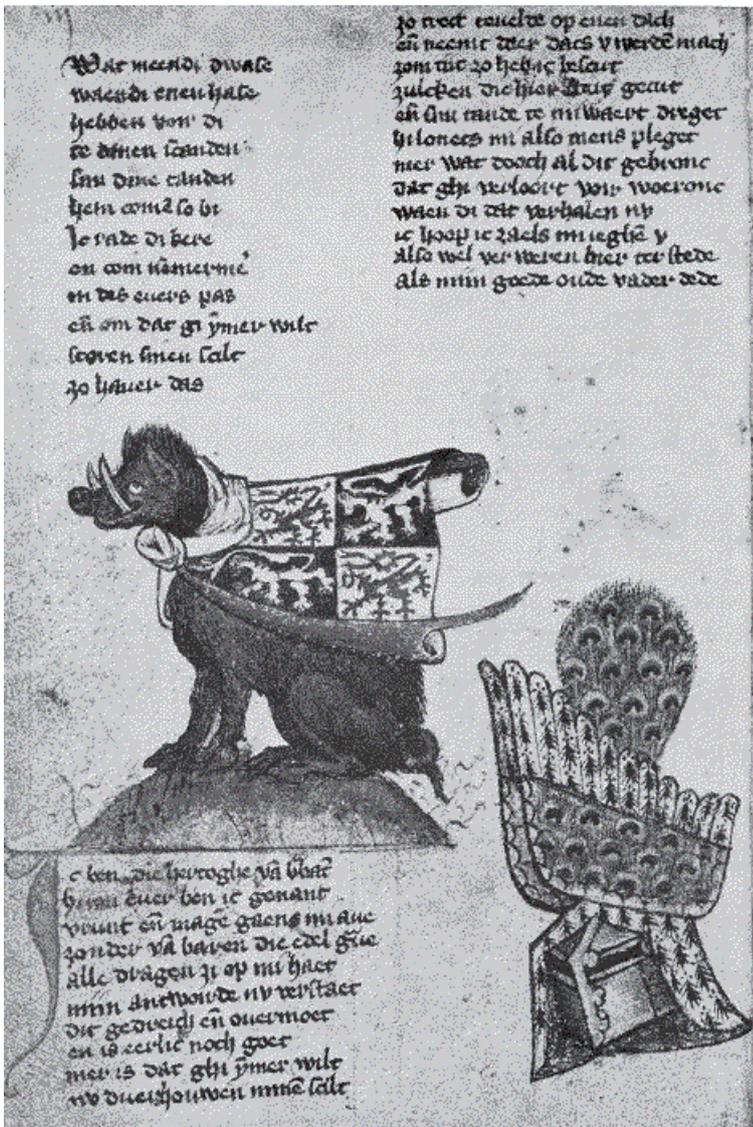 Wat meendi dwase
waendi enen hase
hebben vor di
te dinen scanden
sin dine tanden
hem comē so bi
Ic rade di bere
en com nēmermē
in des euers pas
eñ om dat gi ymer wilt
scoren sinen scilt
zo hauer das
zo trect teuelde op enen dach
eñ neemt daer dats v werdē mach
zom tijt zo hebic
zulcken die hier
eñ sin tande te miwaert dreget
hi lonets mi also mens pleget
mer wat dooch al dit gebronc
dat ghi verloort voir woeronc
waen di dat verhalen nv
ic hoop ic zaels mi ieghē v
also wel ver weren hier ter stede
als mijn goede oude vader dede
c ben die hertoghe vā bbāt
euer ben ic genant
vrient eñ mage gaens mi aue
zonder vā baren die edel gue
alle dragen zi op mi haet
mijn antwoirde nv verstaet
dit gedreich eñ ouermoet
en is eerlic noch goet
mer is dat ghi ymer wilt
nv duerhouwen minē scilt